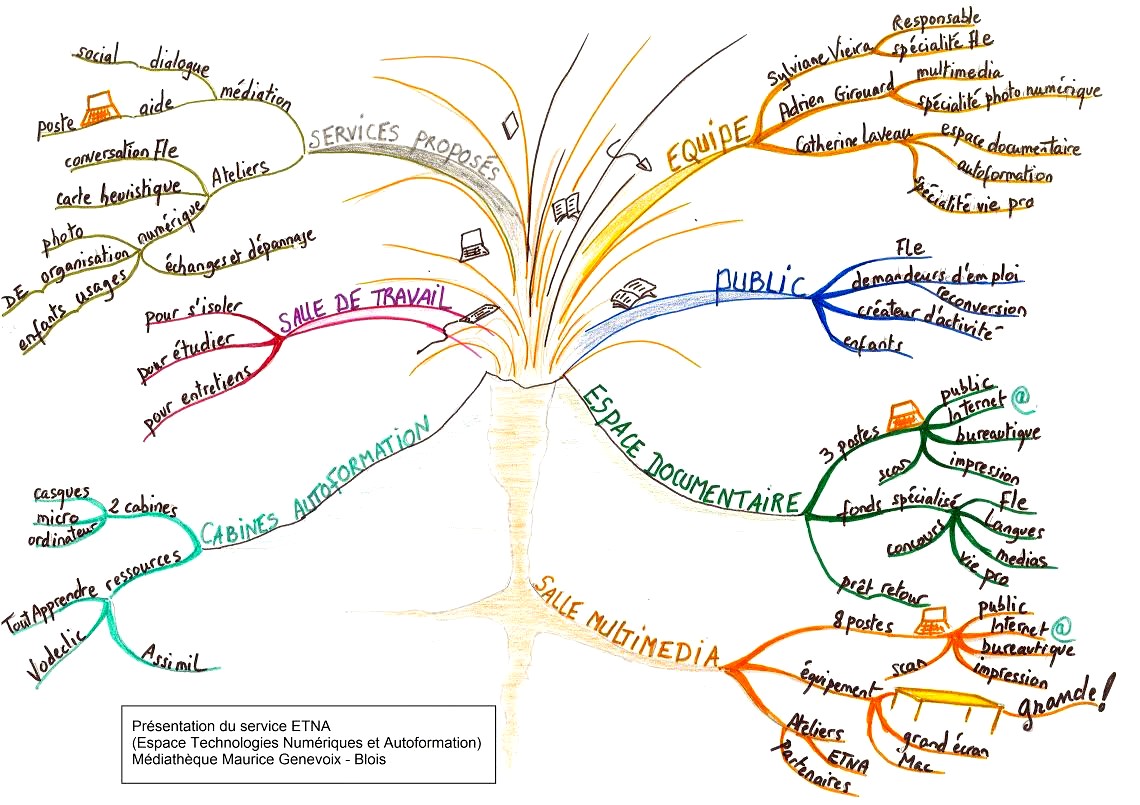 SERVICES PROPOSÉS
médiation
dialogue
social
aide
poste
Ateliers
conversation Fle
carte heuristique
numérique
photo
organisation
DE
usages
enfants
échanges et dépannage
SALLE DE TRAVAIL
pour s'isoler
pour étudier
pour entretiens
CABINES AUTOFORMATION
2 cabines
casques
micro
ordinateur
ressources
Tout Apprendre
Vodeclic
Assimil
EQUIPE
Sylviane Vieira
Responsable
spécialité Fle
Adrien Girouard
multimedia
spécialité photo numérique
Catherine Laveau
espace documentaire
autoformation
spécialité vie pro
PUBLIC
Fle
demandeurs d'emploi
reconversion
créateur d'activité
enfants
ESPACE DOCUMENTAIRE
3 postes
public
Internet @
bureautique
impression
scan
fonds spécialisé
Fle
Langues
medias
vie pro
concours
prêt retour
SALLE MULTIMEDIA
8 postes
public
Internet @
bureautique
impression
scan
équipement
grande!
grand écran
Mac
Ateliers
ETNA
partenaires
Présentation du service ETNA
(Espace Technologies Numériques et Autoformation)
Médiathèque Maurice Genevoix - Blois